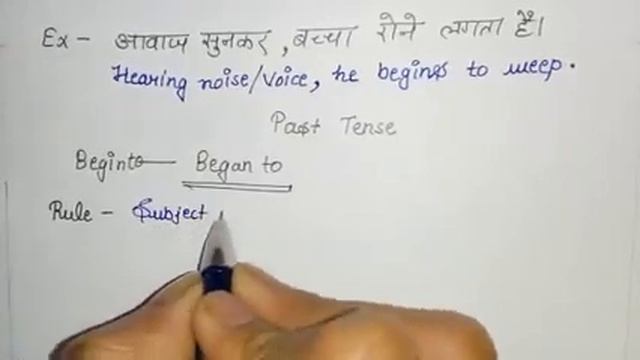 Ex - आवाज सुनकर, बच्चा रोने लगता है।
Hearing noise/voice, he begins to weep.
Past Tense
Begin to — Began to
Rule - Subject